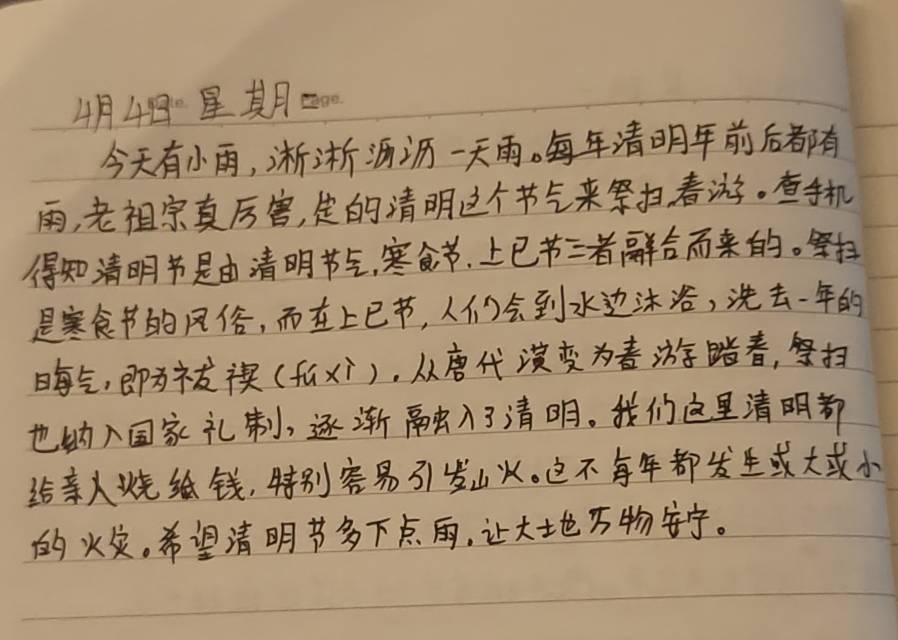 4月4日 星期二
今天有小雨，淅淅沥沥一天雨。每年清明年前后都有
雨，老祖宗真厉害，定的清明这个节气来祭扫，春游。查手机
得知清明节是由清明节气，寒食节，上巳节三者融合而来的。祭扫
是寒食节的风俗，而在上巳节，人们会到水边沐浴，洗去一年的
晦气，即为祓禊（fú xì）。从唐代演变为春游踏春，祭扫
也纳入国家礼制，逐渐融入了清明。我们这里清明都
给亲人烧纸钱，特别容易引发山火。这不每年都发生或大或小
的火灾。希望清明节多下点雨，让大土地万物安宁。